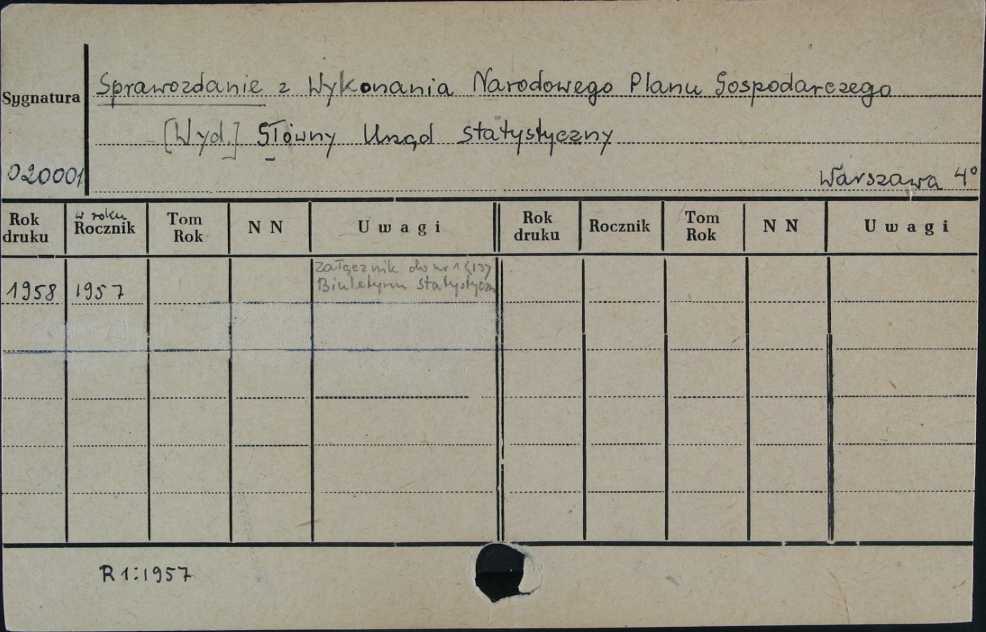 Sprawozdanie z Wykonania Narodowego Planu Gospodarczego
Sygnatura
[Wyd.] Główny Urząd Statystyczny
020001
Warszawa 4°
Rok druku
w roku
Rocznik
Tom Rok
N N
Uwagi
Rok druku
Rocznik
Tom Rok
N N
Uwagi
1958 1957
załącznik do nr 1
Biuletynu Statystyczn
R 1:1957